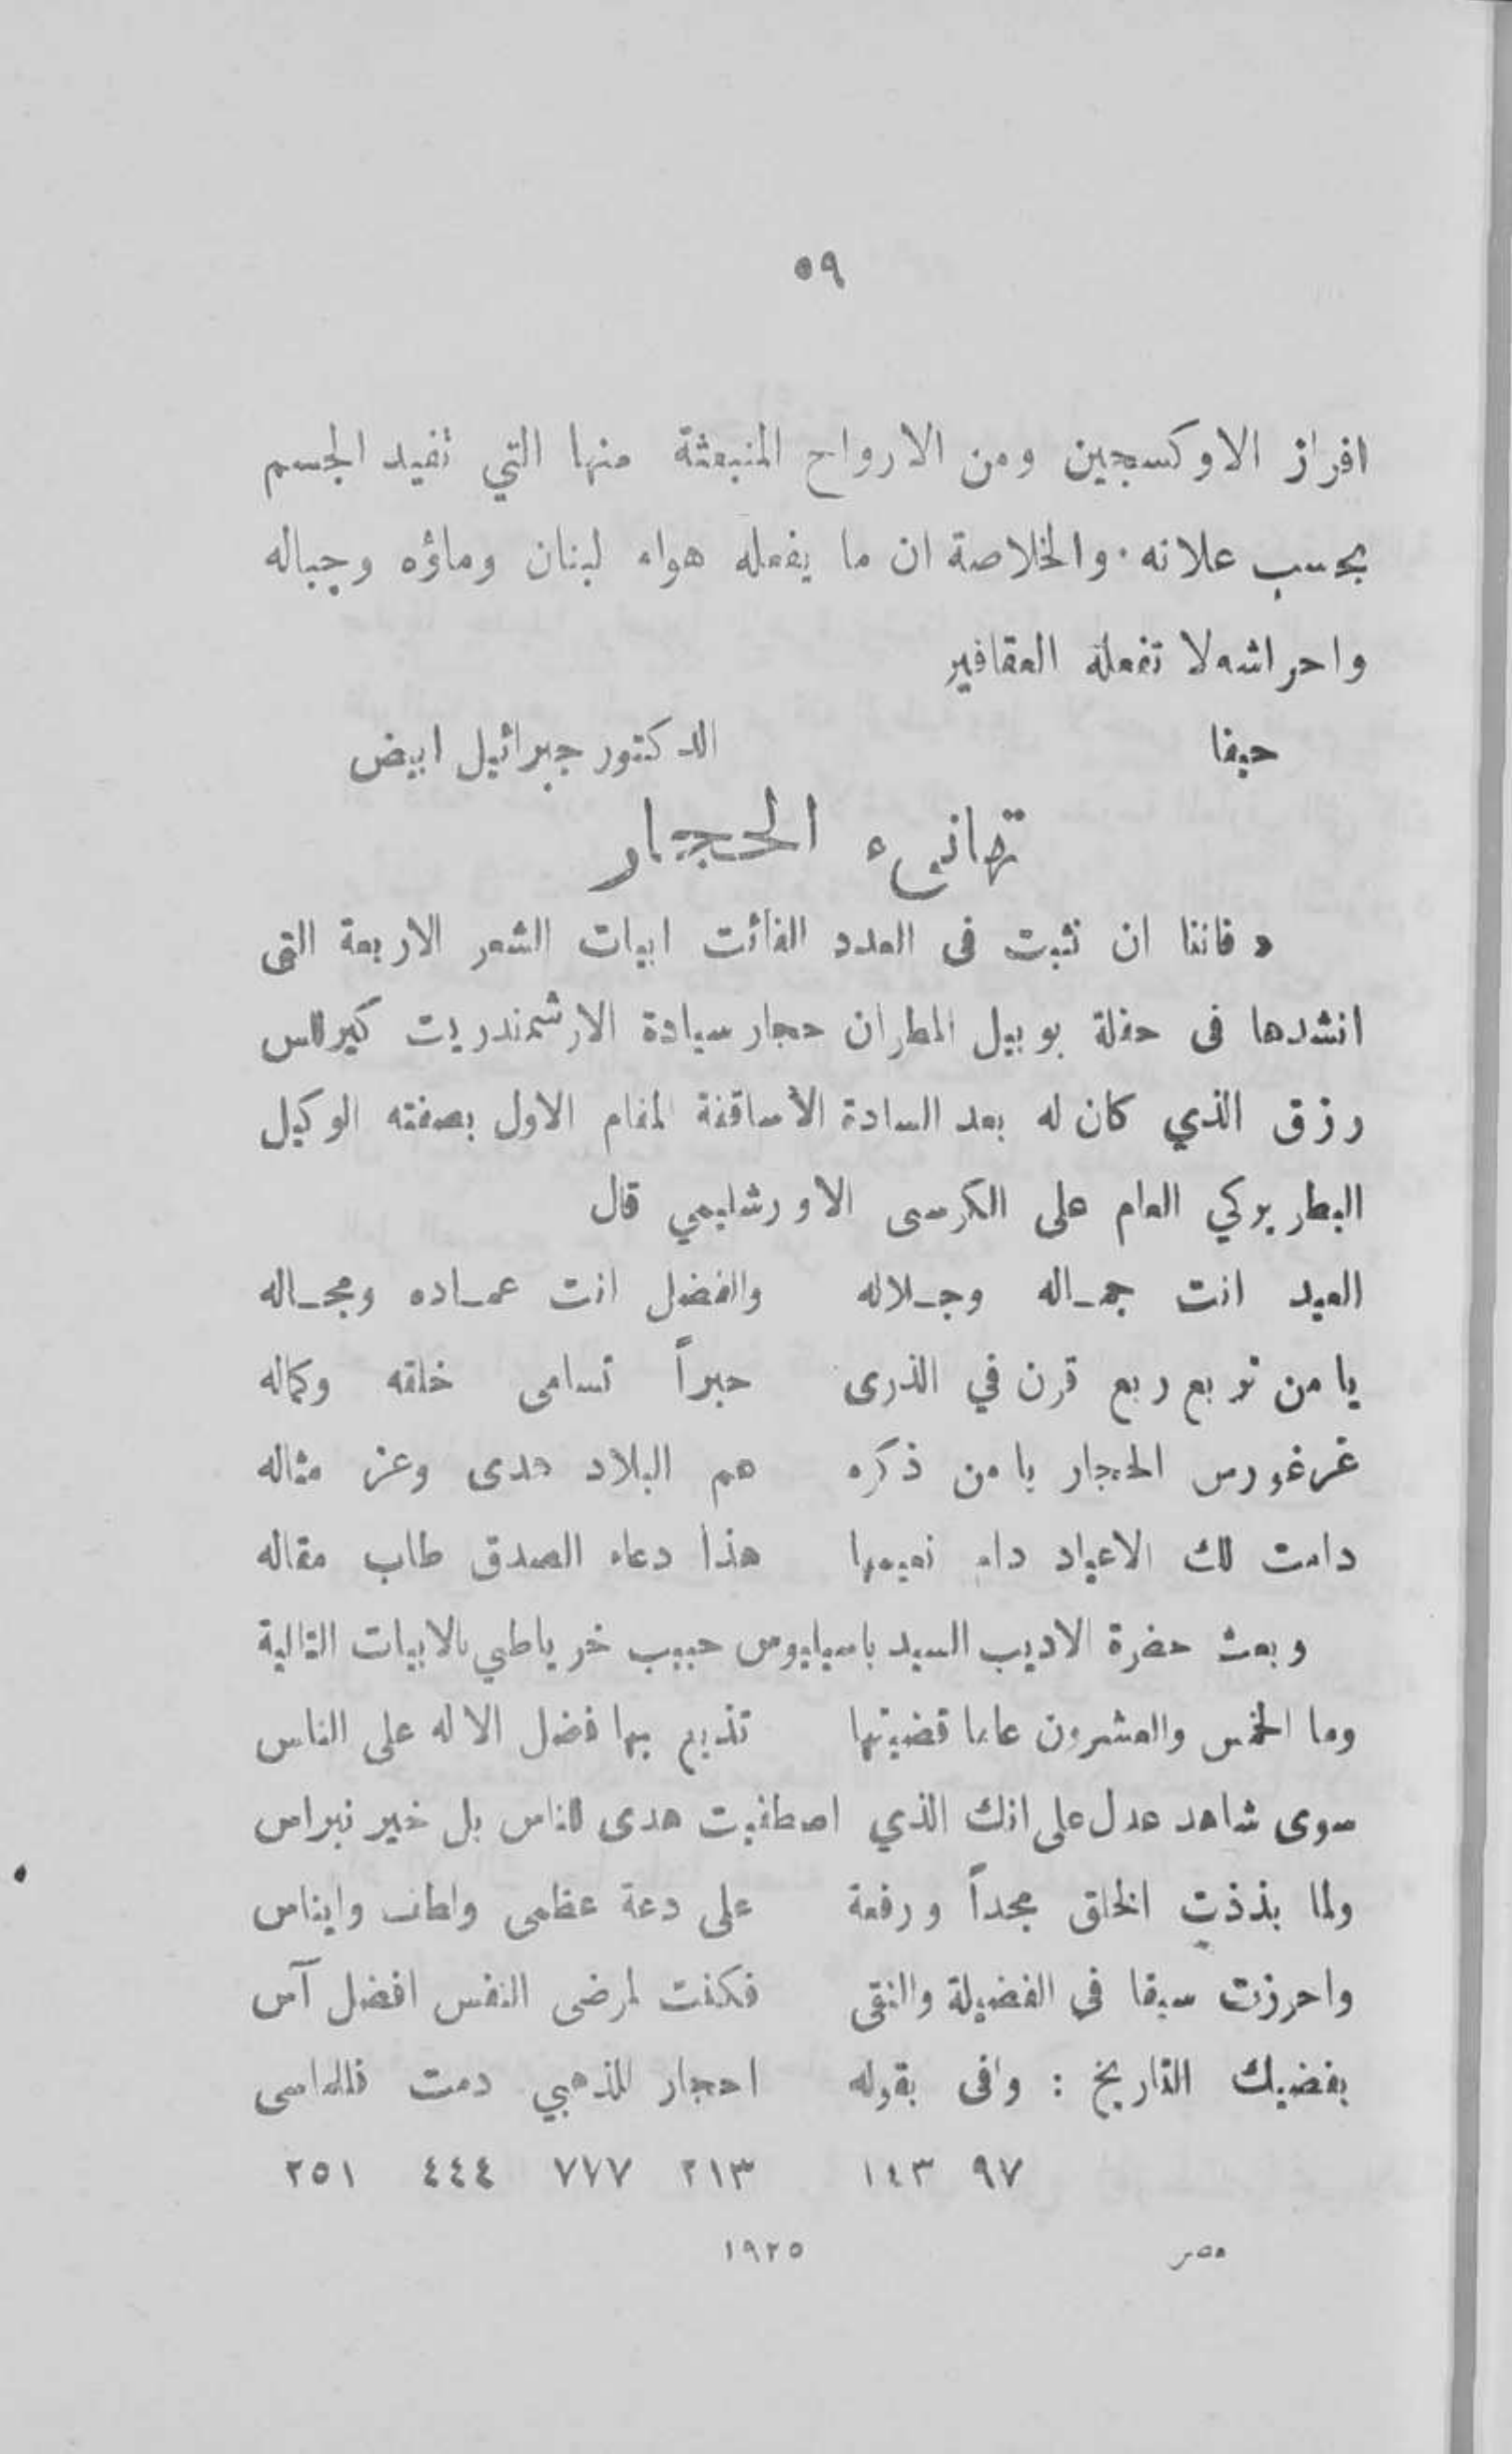 ٥٩
افراز الاوكسجين ومن الارواح المنبعثة منها التي تفيد الجسم
بحسب علاته . والخلاصة ان ما يفعله هواء لبنان وماؤه وجباله
واحراشه لا تفعله العقاقير
حيفا الدكتور جبرائيل ابيض
تهانىء الحجار
« فاتنا ان نثبت فى العدد الفائت ابيات الشعر الاربعة التى
انشدها فى حفلة يوبيل المطران حجار سيادة الارشمندريت كيرلس
رزق الذي كان له بعد السادة الأساقفة المقام الاول بصفته الوكيل
البطريركي العام على الكرسى الاورشليمي قال
العيد انت جمـاله وجـلاله والفضل انت عمـاده ومجـاله
يا من تربع ربع قرن في الذرى حبراً تسامى خلقه وكماله
غرغورس الحجار يا من ذكره هم البلاد هدى وعز مثاله
دامت لك الاعياد دام نعيمها هذا دعاء الصدق طاب مقاله
وبعث حضرة الاديب السيد باسيليوس حبيب خرياطي بالابيات التالية
وما الخمس والعشرون عاما قضيتها تذيع بها فضل الاله على الناس
سوى شاهد عدل على انك الذي اصطفيت هدى للناس بل خير نبراس
ولما بذذت الخلق مجداً ورفعة على دعة عظمى ولطف وايناس
واحرزت سبقا فى الفضيلة والتقى فكنت لمرضى النفس افضل آس
بفضلك التاريخ : وافى بقوله احجار للذهبي دمت فللماسى
٩٧ ١٤٣ ٢١٣ ٧٧٧ ٤٤٤ ٢٥١
مصر ١٩٢٥